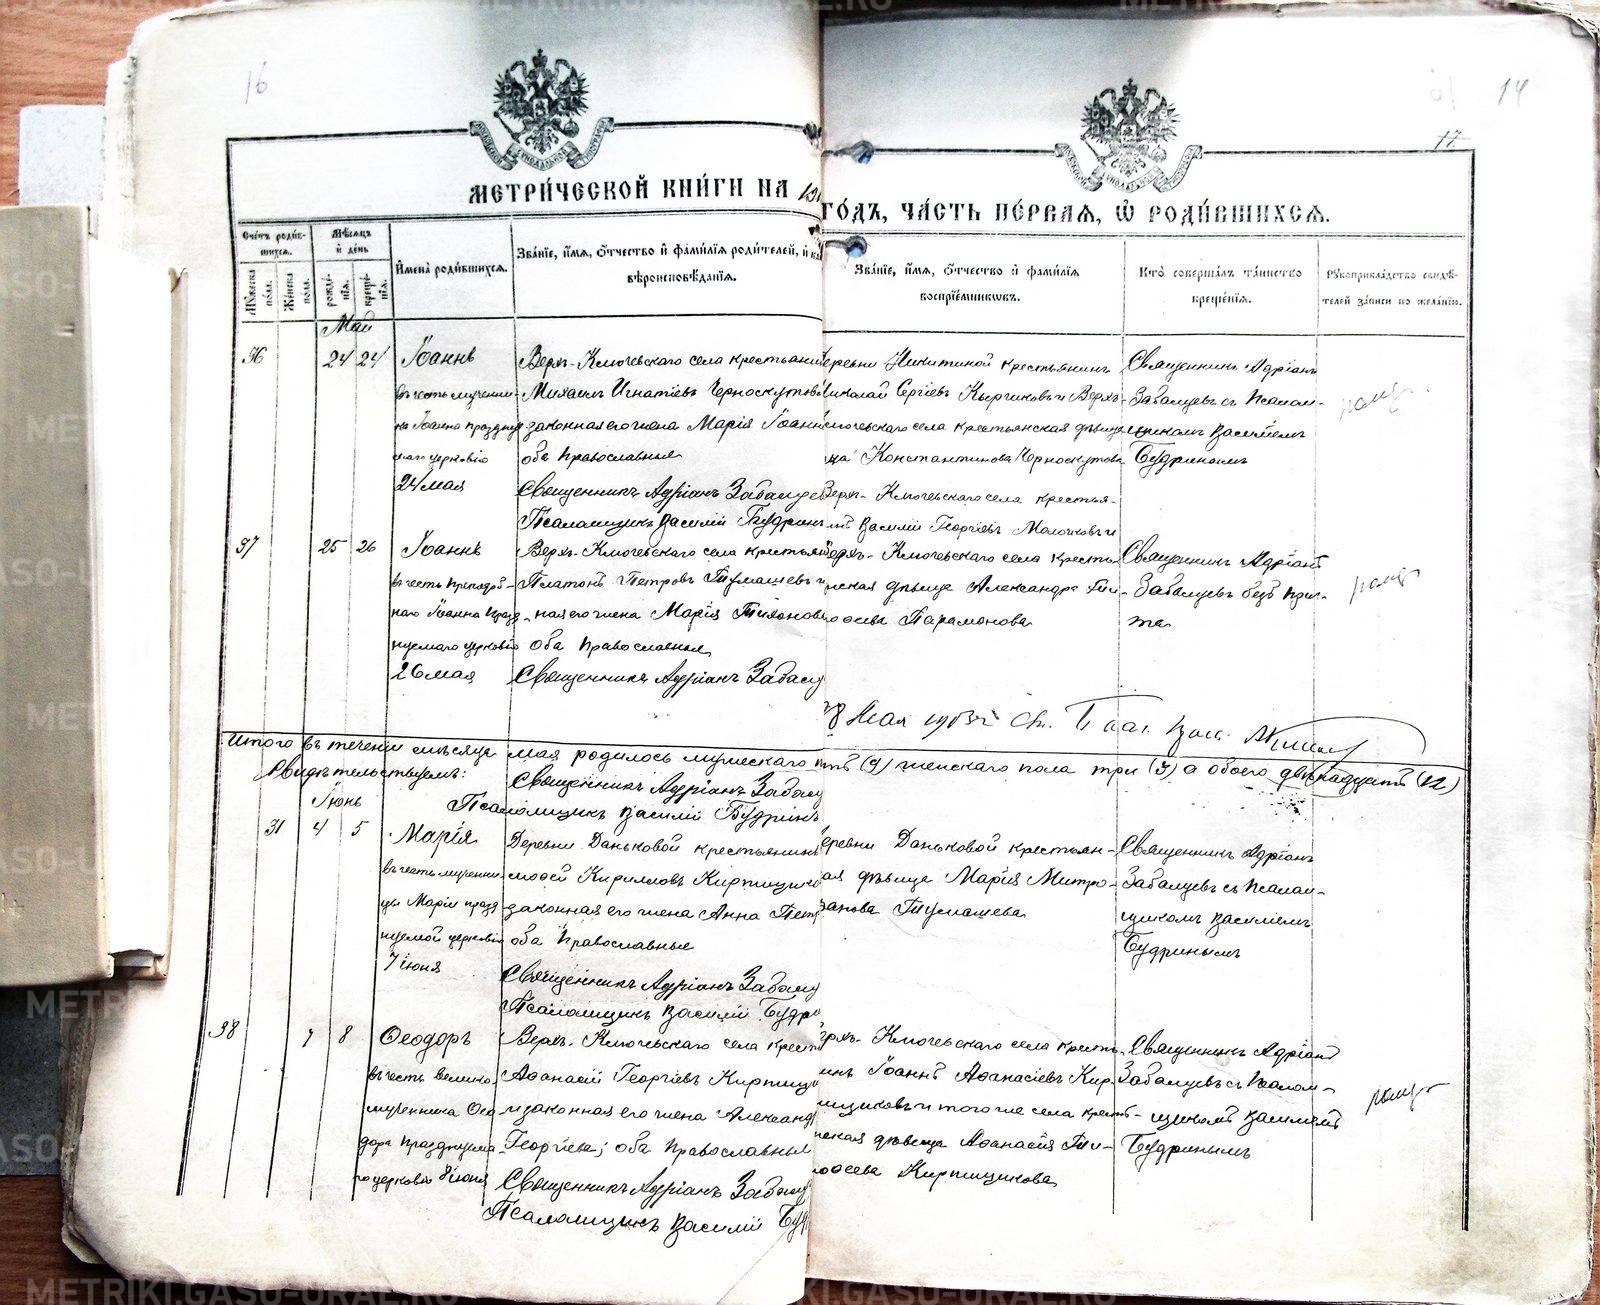 METRIKI.GASO-URAL.RU
16
14
17
МЕТРИ́ЧЕСКОЙ КНИ́ГИ НА
ГО́ДЪ, ЧА́СТЬ ПЕ́РВАЯ, Ѽ РОДИ́ВШИХСЯ.
Сче́тъ роди́вшихся.
Мѣ́сяцъ и де́нь
Имена̀ роди́вшихся.
Зва́нїе, и́мя, ѻ́тчество и фами́лїя роди́телей, и
вѣроисповѣ́данїя.
Зва́нїе, и́мя, ѻ́тчество и фами́лїя
воспрїе́мниковъ.
Кто̀ соверша́лъ та́инство
креще́нїя.
Рукоприкла́дство свидѣ́-
телей за́писи по жела́нїю.
Му́жеска по́ла.
Же́нска по́ла.
рожде́нїя.
креще́нїя.
Май
36 24 24 Іоаннъ
въ честь мученика Іоанна
24 мая
Верхъ-Ключевскаго села крестьянинъ
Михаилъ Игнатіевъ Черноскутовъ
законная его жена Марія Іоанн
оба православные
Священникъ Адріанъ Забалуе
Псаломщикъ Василій Будринъ
деревни Никитиной крестьянинъ
Николай Сергіевъ Кыргиковъ и Верхъ-
Ключевскаго села крестьянская дѣвица
Константинова Черноскутова
Священникъ Адріанъ
Забалуевъ съ Псалом-
щикомъ Василіемъ
Будринымъ
37 25 26 Іоаннъ
въ честь преподоб-
наго Іоанна
26 мая
Верхъ-Ключевскаго села крестьян
Платонъ Петровъ Тумашевъ и
ная его жена Марія Тихонова
оба православные
Священникъ Адріанъ Забалу
Верхъ-Ключевскаго села крестья-
Василій Георгіевъ Молочковъ и
Верхъ-Ключевскаго села кресть-
янская дѣвица Александра Ти-
моѳеева Парамонова
Священникъ Адріанъ
Забалуевъ безъ прич-
та
Итого въ теченіи мѣсяца мая родилось мужескаго (9) женскаго пола три (3) а обоего двѣнадцать (12)
Свидѣтельствуемъ:
Священникъ Адріанъ Забалу
Псаломщикъ Василій Будринъ
Іюнь
31 4 5 Марія
въ честь мучени-
цы Маріи празд-
нуемой церковію
7 іюня
Деревни Даньковой крестьянинъ
Кирилловъ Кирпищико
законная его жена Анна Петр
оба православные
Священникъ Адріанъ Забалу
Псаломщикъ Василій Будри
деревни Даньковой крестьян-
ская дѣвица Марія Митро-
фанова Тумашева
Священникъ Адріанъ
Забалуевъ съ Псалом-
щикомъ Василіемъ
Будринымъ
38 7 8 Ѳеодоръ
въ честь велико-
мученника Ѳео-
дора празднуема-
го церковію 8 іюня
Верхъ-Ключевскаго села крест
Аѳанасій Георгіевъ Кирпищи
и законная его жена Александ
Георгіева; оба православные
Священникъ Адріанъ Забалу
Псаломщикъ Василій Буд
Верхъ-Ключевскаго села кресть-
нинъ Іоаннъ Аѳанасіевъ Кир-
пищиковъ и того же села кресть-
янская дѣвица Аѳанасія Ти-
моѳеева Кирпищикова
Священникъ Адріанъ
Забалуевъ съ Псалом-
щикомъ Василіемъ
Будринымъ
METRIKI.GASO-URAL.RU